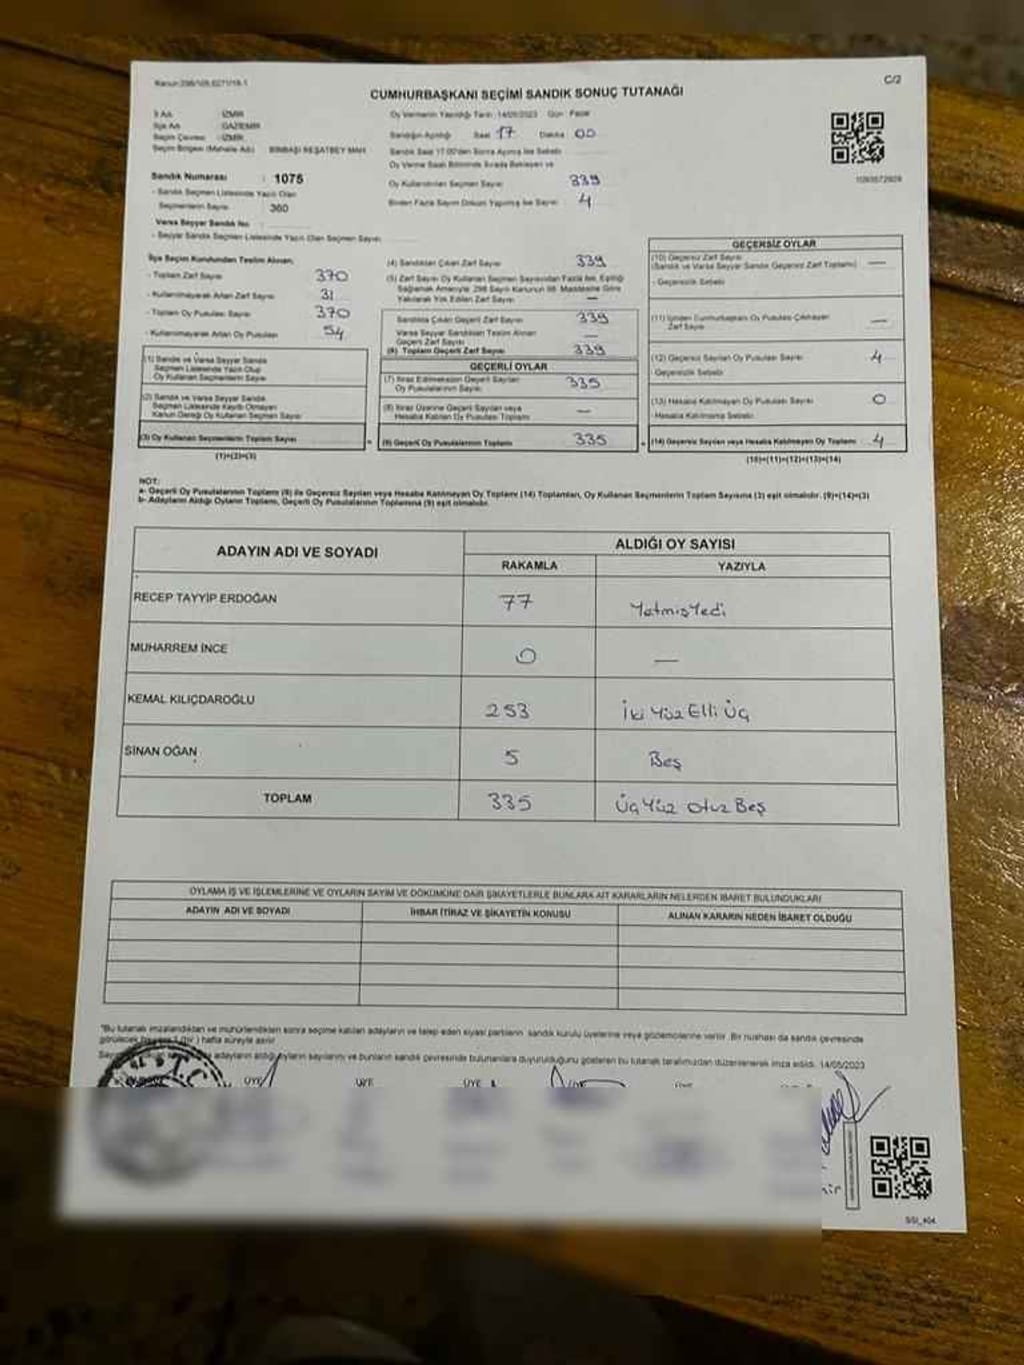 C/2
CUMHURBAŞKANI SEÇİMİ SANDIK SONUÇ TUTANAĞI
İl Adı : İZMİR
İlçe Adı : GAZİEMİR
Seçim Çevresi : İZMİR
Seçim Bölgesi (Mahalle Adı) : BİNBAŞI REŞATBEY MAH.
Sandık Numarası : 1075
- Sandık Seçmen Listesinde Yazılı Olan
Seçmenlerin Sayısı : 360
Varsa Seyyar Sandık No :
- Seyyar Sandık Seçmen Listesinde Yazılı Olan Seçmen Sayısı
Oy Vermenin Yapıldığı Tarih: 14/05/2023 Gün: Pazar
Sandığın Açıldığı Saat 17 Dakika 00
Sandık Saat 17.00'den Sonra Açılmış İse Sebebi
Oy Verme Saati Bitiminde Sırada Bekleyen ve
Oy Kullandırılan Seçmen Sayısı 339
Birden Fazla Sayım Döküm Yapılmış İse Sayısı 4
İlçe Seçim Kurulundan Teslim Alınan:
- Toplam Zarf Sayısı 370
- Kullanılmayarak Artan Zarf Sayısı 31
- Toplam Oy Pusulası 370
- Kullanılmayarak Artan Oy Pusulası 54
(1) Sandık ve Varsa Seyyar Sandık
Seçmen Listesinde Yazılı Olup
Oy Kullanan Seçmenlerin Sayısı
(2) Sandık ve Varsa Seyyar Sandık
Seçmen Listesinde Kayıtlı Olmayan
Kanun Gereği Oy Kullanan Seçmen Sayısı
(3) Oy Kullanan Seçmenlerin Toplam Sayısı
(1)+(2)=(3)
(4) Sandıktan Çıkan Zarf Sayısı 339
(5) Zarf Sayısı Oy Kullanan Seçmen Sayısından Fazla İse, Eşitliği
Sağlamak Amacıyla, 298 Sayılı Kanunun 98. Maddesine Göre
Yakılarak Yok Edilen Zarf Sayısı —
Sandıkta Çıkan Geçerli Zarf Sayısı 339
Varsa Seyyar Sandıktan Teslim Alınan
Geçerli Zarf Sayısı —
(6) Toplam Geçerli Zarf Sayısı 339
GEÇERLİ OYLAR
(7) İtiraz Edilmeksizin Geçerli Sayılan
Oy Pusulalarının Sayısı 335
(8) İtiraz Üzerine Geçerli Sayılan veya
Hesaba Katılan Oy Pusulası Toplamı —
(9) Geçerli Oy Pusulalarının Toplamı 335
GEÇERSİZ OYLAR
(10) Geçersiz Zarf Sayısı —
(Sandık ve Varsa Seyyar Sandık Geçersiz Zarf Toplamı)
- Geçersizlik Sebebi
(11) İçinden Cumhurbaşkanı Oy Pusulası Çıkmayan
Zarf Sayısı —
(12) Geçersiz Sayılan Oy Pusulası Sayısı 4
- Geçersizlik Sebebi
(13) Hesaba Katılmayan Oy Pusulası Sayısı 0
- Hesaba Katılmama Sebebi
(14) Geçersiz Sayılan veya Hesaba Katılmayan Oy Toplamı 4
(10)+(11)+(12)+(13)=(14)
NOT:
a- Geçerli Oy Pusulalarının Toplamı (9) ile Geçersiz Sayılan veya Hesaba Katılmayan Oy Toplamı (14) Toplamları, Oy Kullanan Seçmenlerin Toplam Sayısına (3) eşit olmalıdır. (9)+(14)=(3)
b- Adayların Aldığı Oyların Toplamı, Geçerli Oy Pusulalarının Toplamına (9) eşit olmalıdır.
ADAYIN ADI VE SOYADI ALDIĞI OY SAYISI
RAKAMLA YAZIYLA
RECEP TAYYİP ERDOĞAN 77 YetmişYedi
MUHARREM İNCE 0 —
KEMAL KILIÇDAROĞLU 253 İki Yüz Elli Üç
SİNAN OĞAN 5 Beş
TOPLAM 335 Üç Yüz Otuz Beş
OYLAMA İŞ VE İŞLEMLERİNE VE OYLARIN SAYIM VE DÖKÜMÜNE DAİR ŞİKAYETLERLE BUNLARA AİT KARARLARIN NELERDEN İBARET BULUNDUKLARI
ADAYIN ADI VE SOYADI İHBAR İTİRAZ VE ŞİKAYETİN KONUSU ALINAN KARARIN NEDEN İBARET OLDUĞU
"Bu tutanak imzalandıktan ve mühürlendikten sonra seçime katılan adayların ve talep eden siyasi partilerin sandık kurulu üyelerine veya gözlemcilerine verilir. Bir nüshası da sandık çevresinde
görülecek bir yere 1 (bir) hafta süreyle asılır.
adayların aldığı oyların sayılarını ve bunların sandık çevresinde bulunanlara duyurulduğunu gösteren bu tutanak tarafımızdan düzenlenerek imza edildi. 14/05/2023
T.C.
ÜYE ÜYE ÜYE ÜYE ÜYE